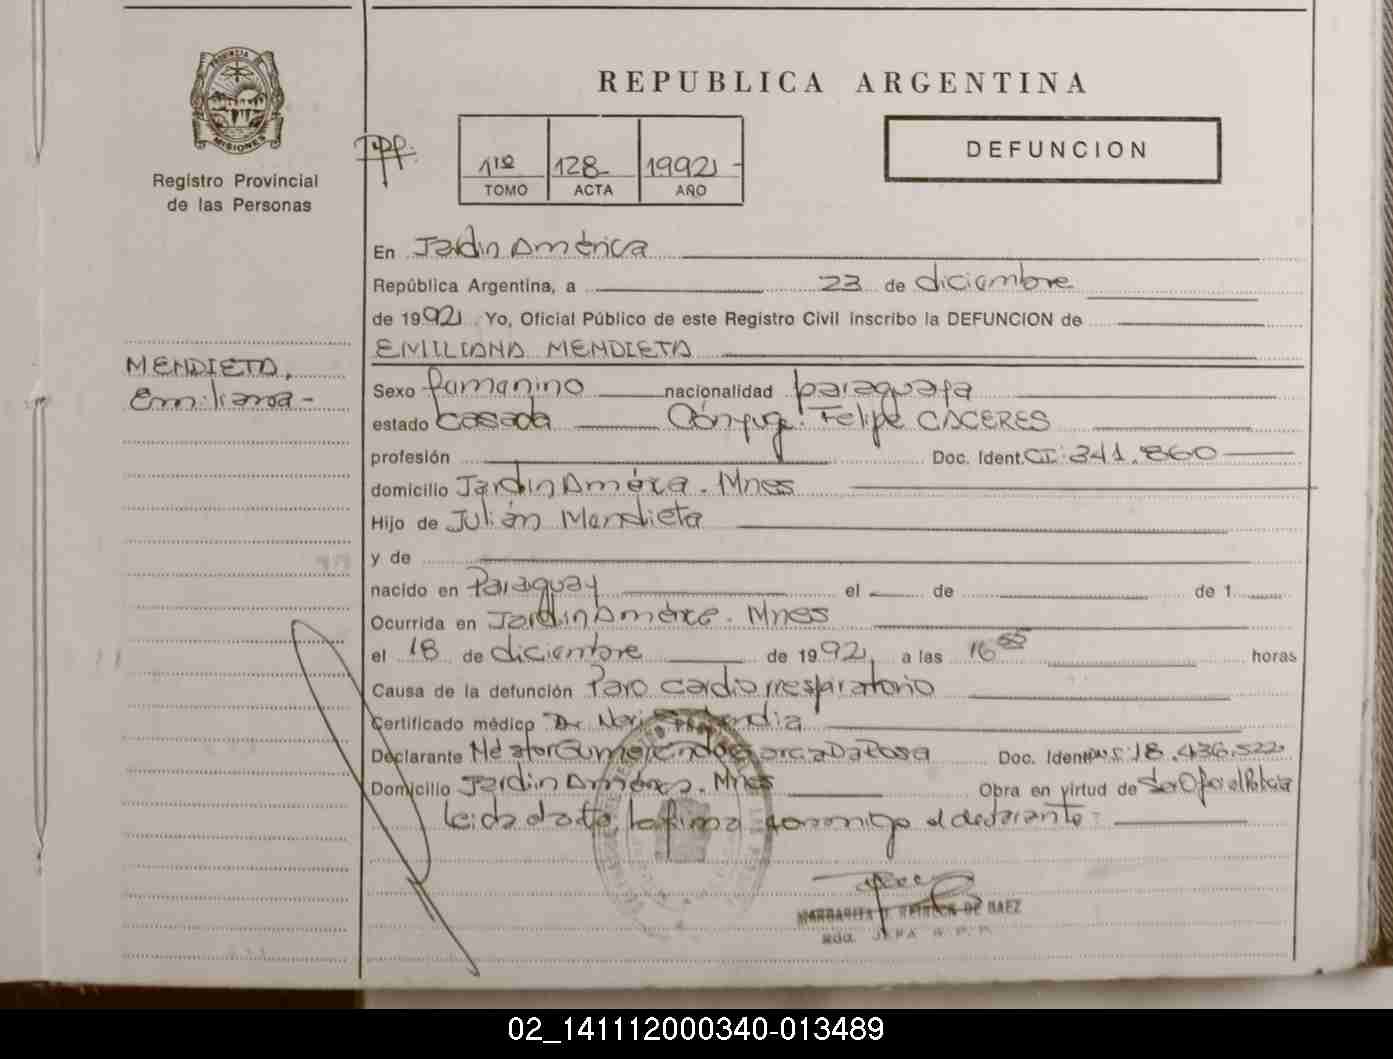 PROVINCIA DE
MISIONES
Registro Provincial
de las Personas
REPUBLICA ARGENTINA
1º 128 1992
TOMO ACTA AÑO
DEFUNCION
En Jardin América
República Argentina, a 23 de diciembre
de 1992 Yo, Oficial Público de este Registro Civil inscribo la DEFUNCION de
EMILIANA MENDIETA
MENDIETA,
Emiliana -
Sexo famanino nacionalidad paraguaya
estado Casada Cónyuge: Felipe CACERES
profesión Doc. Ident. CI: 341.860
domicilio Jardin América. Mnes
Hijo de Julián Mendieta
y de
nacido en Paraguay el de de 1
Ocurrida en Jardin América. Mnes
el 18 de diciembre de 1992 a las 16 horas
Causa de la defunción Paro cardio rrespiratorio
Certificado médico Dr
Declarante Néstor Gumercindo Garca Da Rosa Doc. Ident 18.436.522
Domicilio Jardin América. Mnes Obra en virtud de
Leida la firma conmigo el declarante:
MARGARITA DE BAEZ